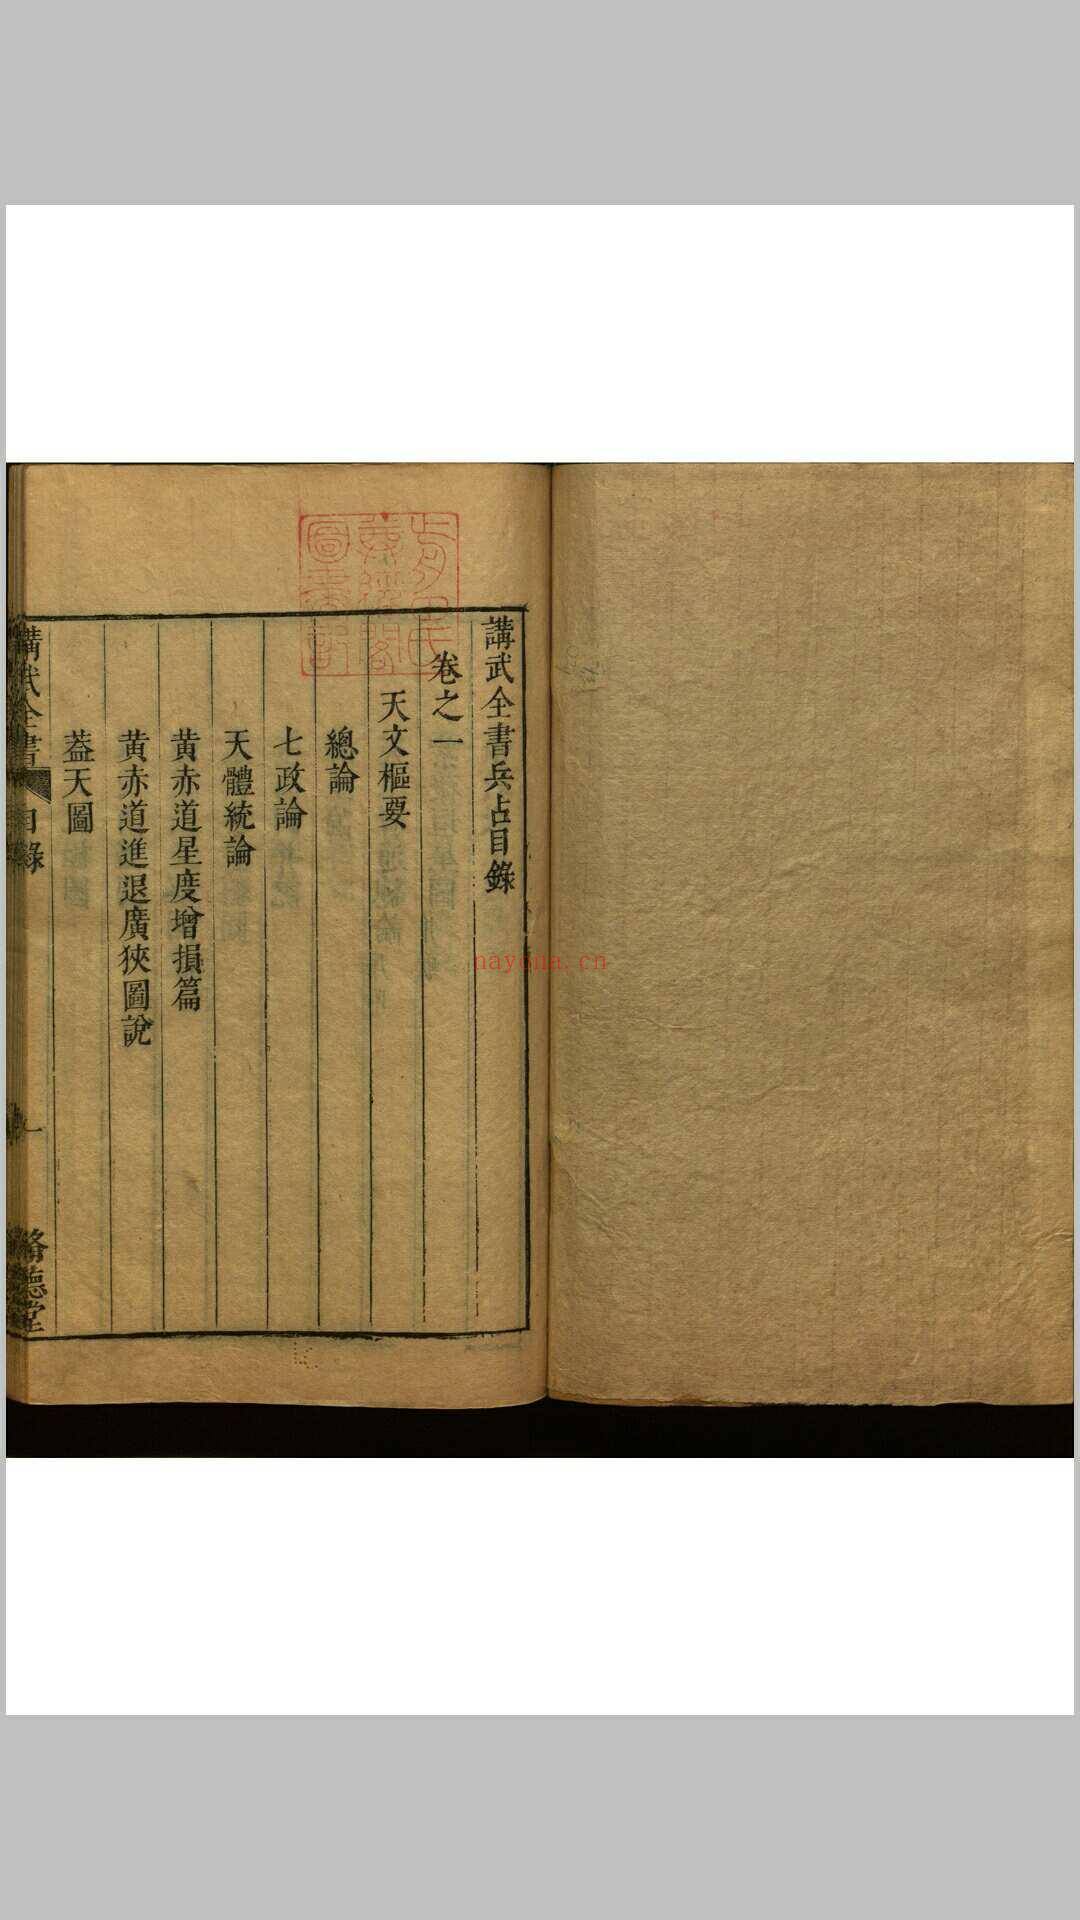 講武全書兵占目錄
卷之一
天文樞要
總論
七政論
天體統論
黄赤道星度增損篇
黄赤道進退廣狹圖說
葢天圖
講武全書 目錄 一 脩德堂
nayona.cn